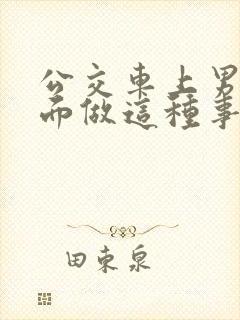 公交車上男
而做這種事
田束泉